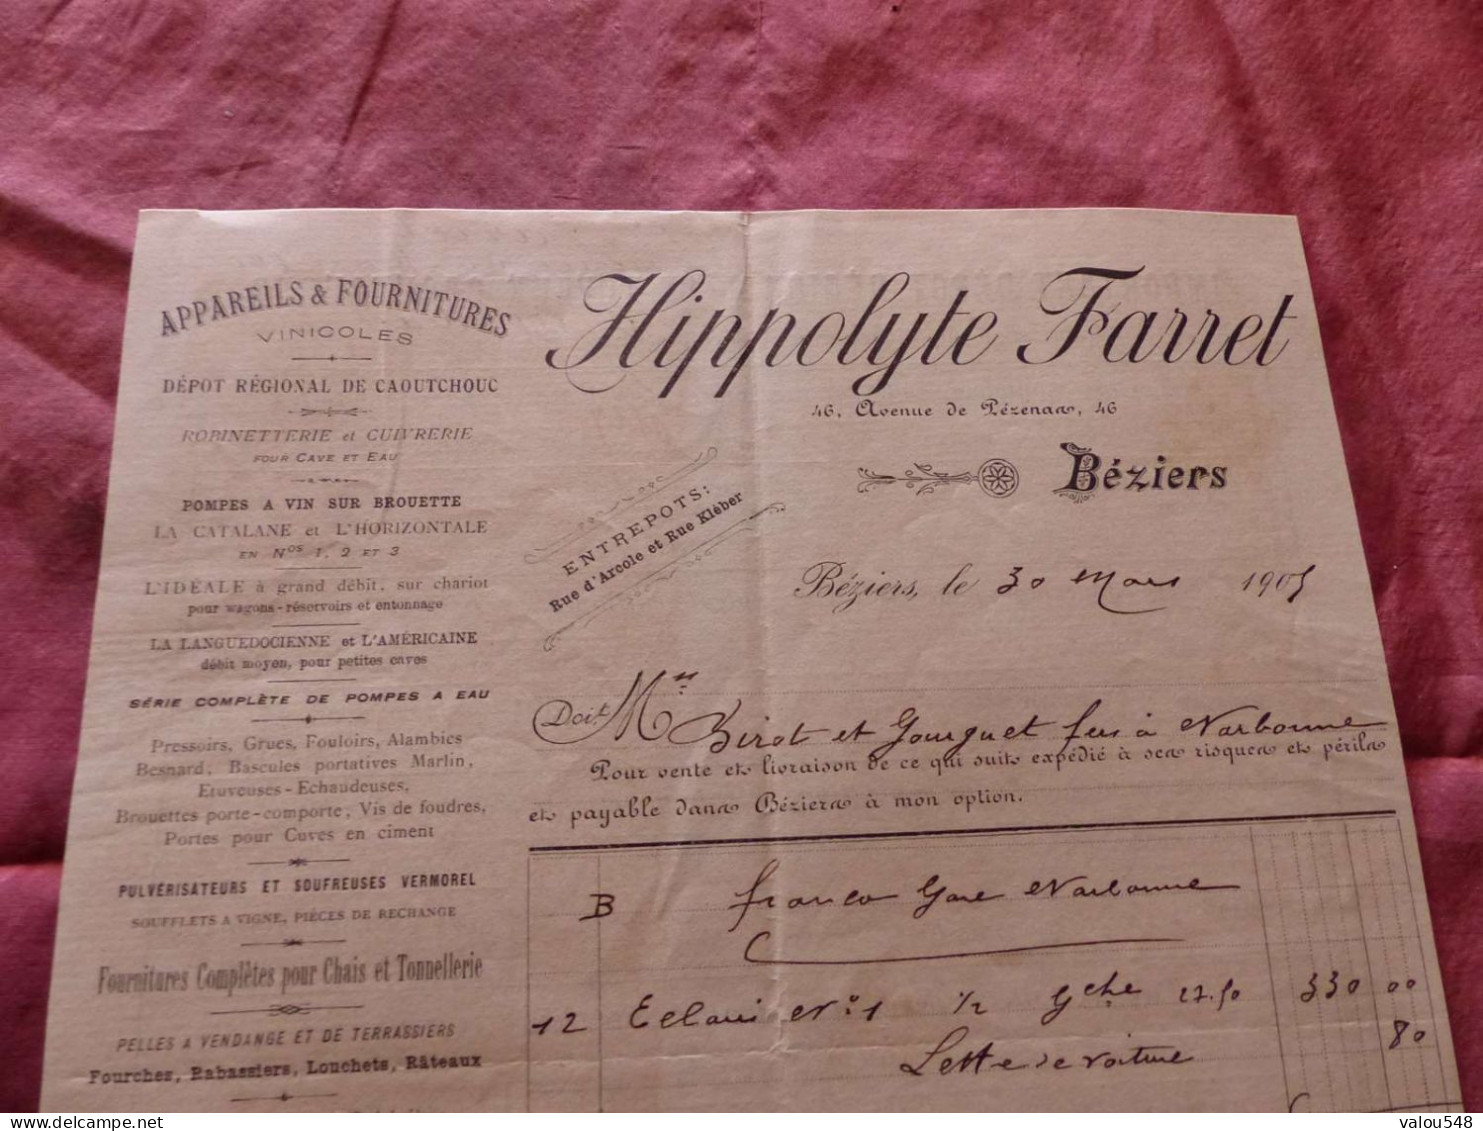 APPAREILS & FOURNITURES
VINICOLES
DÉPOT RÉGIONAL DE CAOUTCHOUC
ROBINETTERIE et CUIVRERIE
POUR CAVE ET EAU
POMPES A VIN SUR BROUETTE
LA CATALANE et L'HORIZONTALE
EN Nos 1, 2 ET 3
L'IDÉALE à grand débit, sur chariot
pour wagons-réservoirs et entonnage
LA LANGUEDOCIENNE et L'AMÉRICAINE
débit moyen, pour petites caves
SÉRIE COMPLÈTE DE POMPES A EAU
Pressoirs, Grues, Fouloirs, Alambics
Besnard, Bascules portatives Marlin,
Etuveuses-Echaudeuses,
Brouettes porte-comporte, Vis de foudres,
Portes pour Cuves en ciment
PULVÉRISATEURS ET SOUFREUSES VERMOREL
SOUFFLETS A VIGNE, PIÈCES DE RECHANGE
Fournitures Complètes pour Chais et Tonnellerie
PELLES A VENDANGE ET DE TERRASSIERS
Fourches, Rabassiers, Louchets, Râteaux
Hippolyte Farret
46, Avenue de Pézenas, 46
Béziers
ENTREPOTS:
Rue d'Arcole et Rue Kléber
Béziers, le 30 Mars 1905
Doit Mrs Birot et Gourguet fres à Narbonne
Pour vente et livraison de ce qui suit expédié à ses risques et périls
et payable dans Béziers à mon option.
B franco Gare Narbonne
12 Eclair No 1 1/2 Gche 27.50 330 00
Lettre de voiture 80
www.delcampe.net
valou548